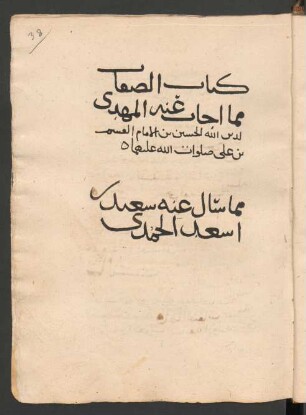 38
كتاب الصفات
مما اجاب عنه المهدي
لدين الله الحسين بن الامام القسم
بن على صلوات الله عليهما ه
مما سال عنه سعيد بن
اسعد الحمدي